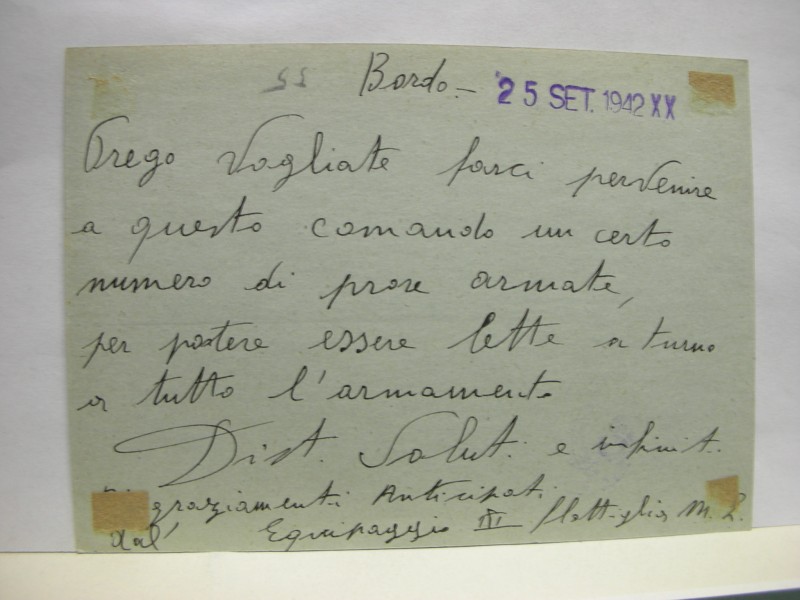 Bordo - 25 SET. 1942 XX
Prego Vogliate farci pervenire
a questo comando un certo
numero di prore armate,
per potere essere lette a turno
a tutto l'armamento
Dist. Salut. e infinit.
ringraziamenti Anticipati
dal' Equipaggio III flottiglia M. L.